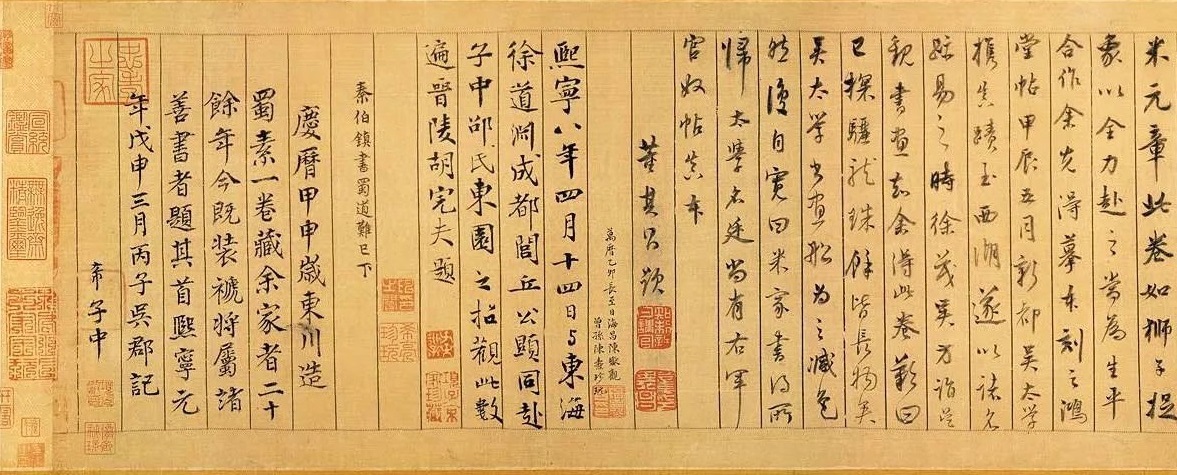 米元章此卷如獅子捉
象以全力赴之當為生平
合作余先得摹本刻之鴻
堂帖甲辰五月新都吳太學
攜真蹟至西湖遂以諸名
跡易之時徐茂吳方詣吳
觀書畫知余得此卷歎曰
已探驪龍珠餘皆長物矣
吳太學書畫船為之減色
然後自寬曰米家書得所
歸太學名廷尚有右軍
官奴帖真本
董其昌題
萬曆乙卯長至日海昌陳瓛觀
曾孫陳春珍玩
熙寧八年四月十四日与東海
徐道淵成都閭丘公顯同赴
子中邵氏東園之招觀此數
遍晉陵胡完夫題
秦伯鎮書蜀道難已下
慶曆甲申歲東川造
蜀素一卷藏余家者二十
餘年今既裝褫將屬諸
善書者題其首熙寧元
年戊申三月丙子吳郡記
子中